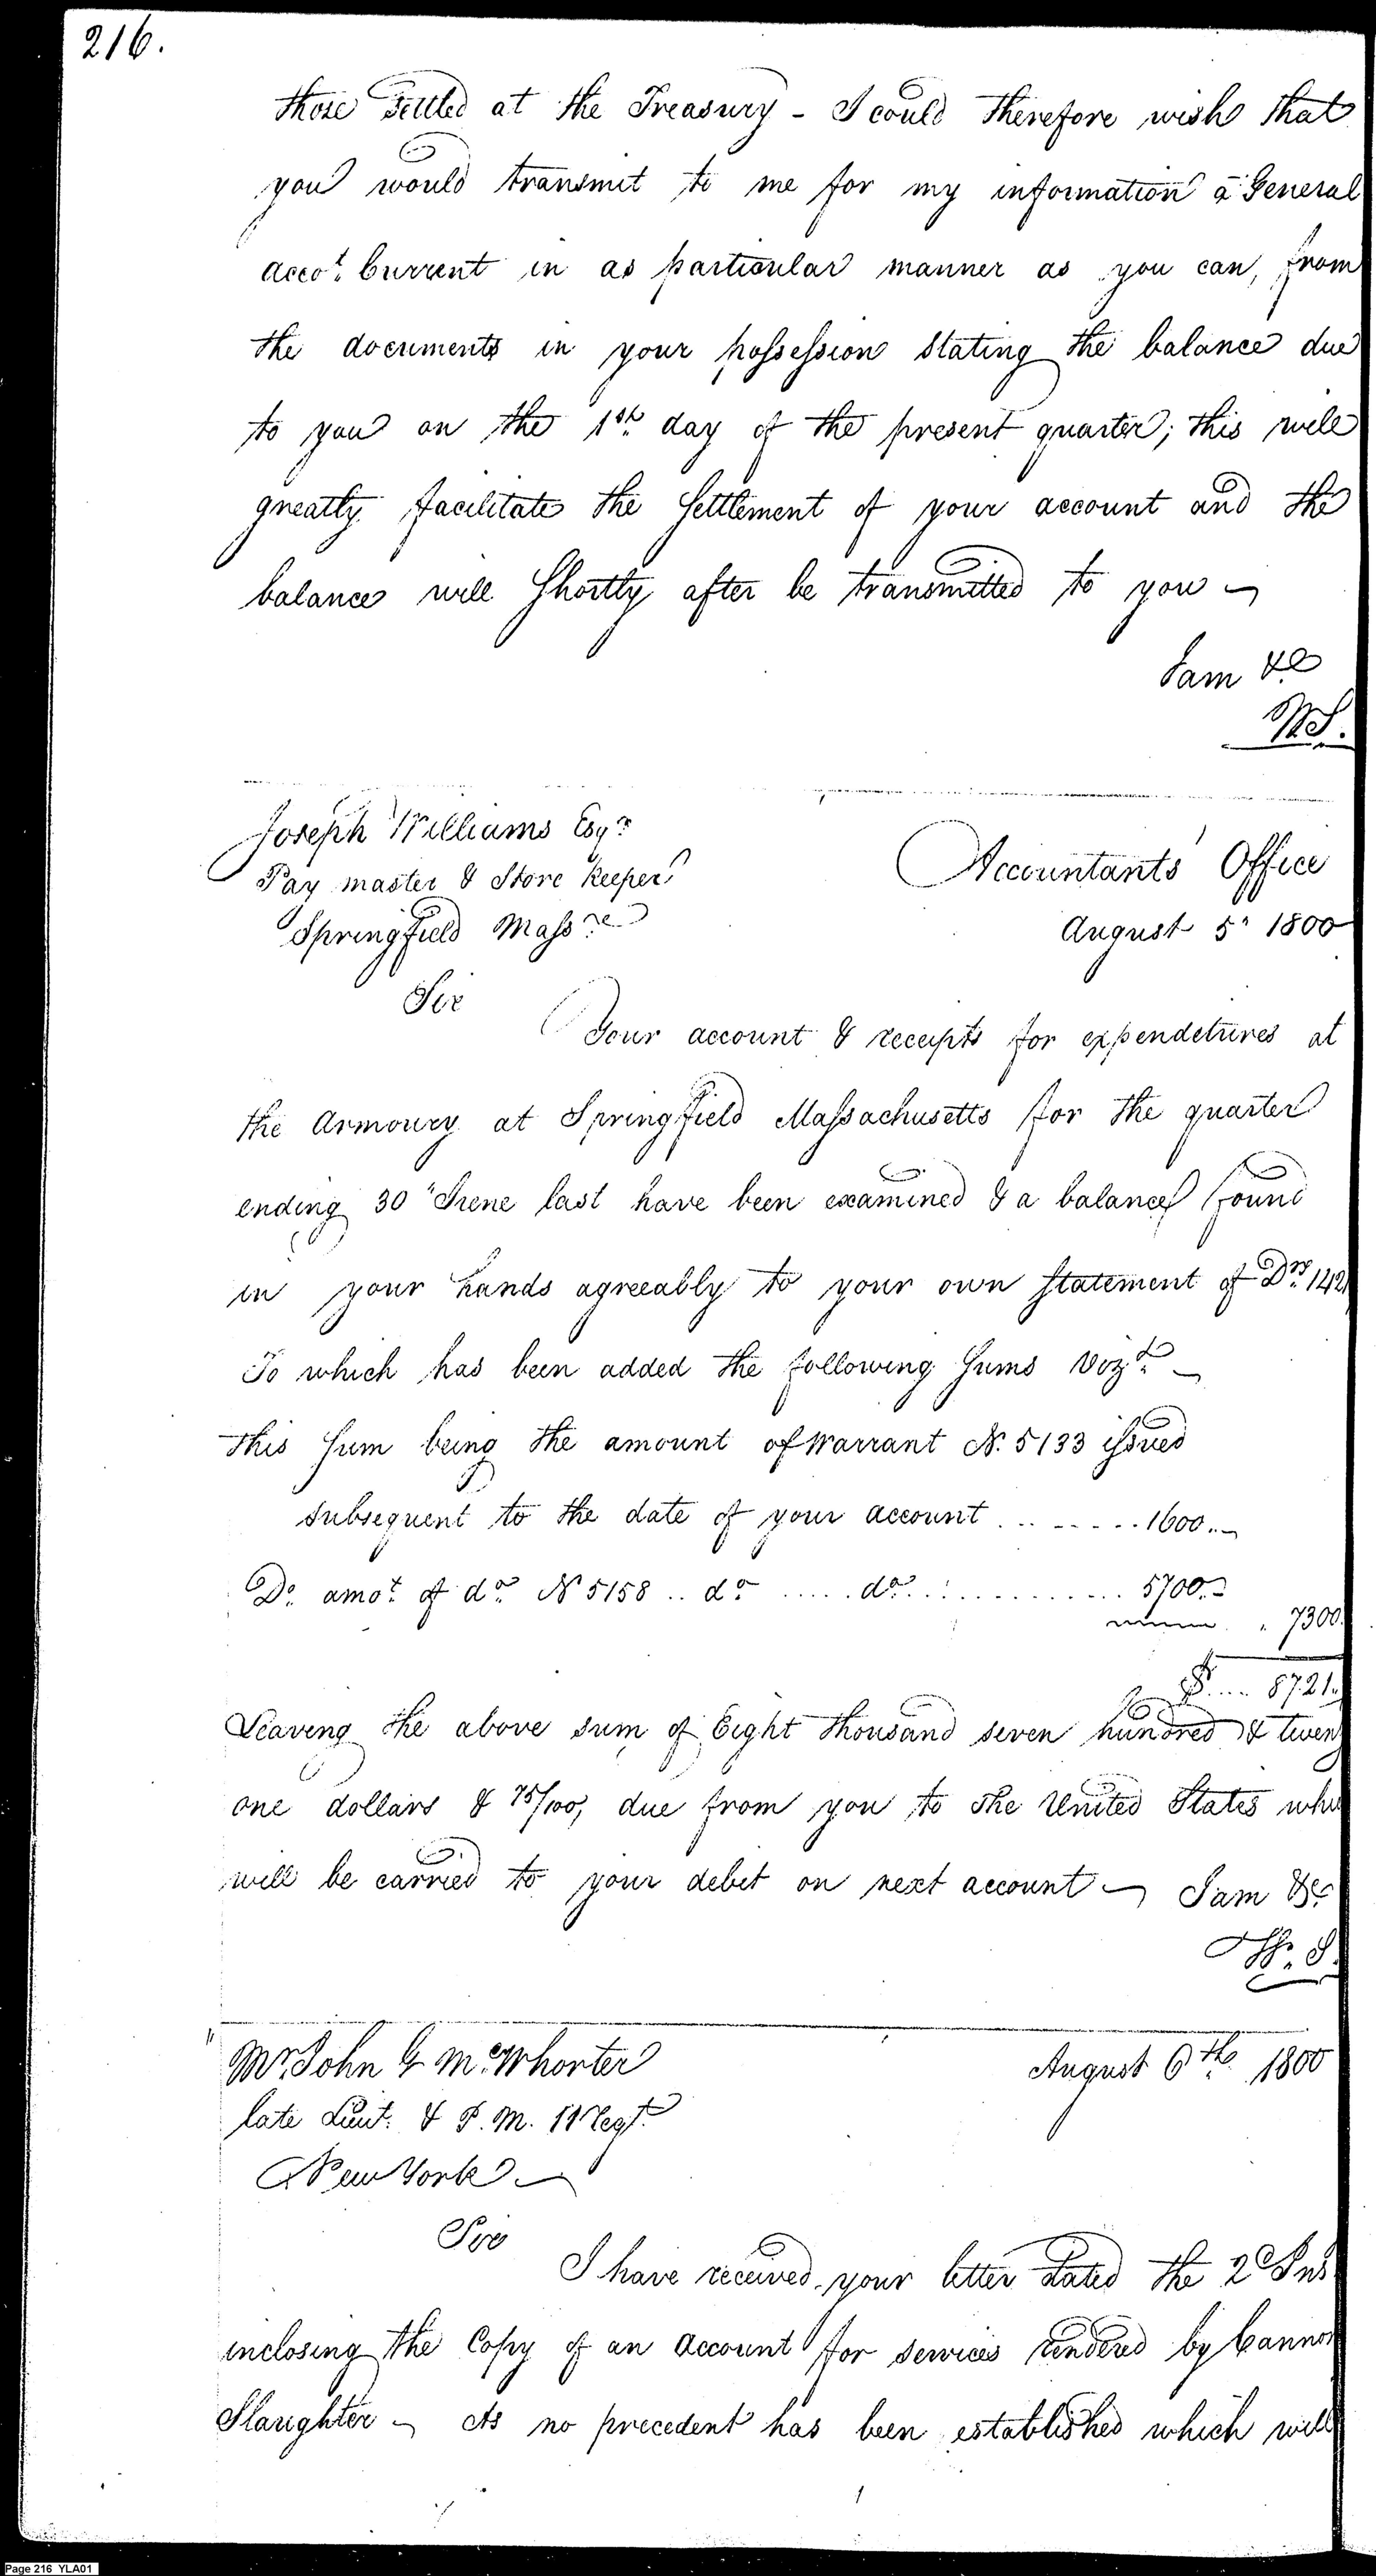 216.
those settled at the Treasury - I could therefore wish that
you would transmit to me for my information a General
accot. Current in as particular manner as you can, from
the documents in your possession stating the balance due
to you on the 1st day of the present quarter; this will
greatly facilitate the Settlement of your account and the
balance will Shortly after be transmitted to you -
I am &c
W S.
Joseph Williams Esqr.
Pay master & Store Keeper
Springfield Massre
Accountants Office
August 5" 1800
Sir
Your account & receipts for expenditures at
the Armoury at Springfield Massachusetts for the quarter
ending 30" June last have been examined & a balance found
in your hands agreeably to your own statement of Drs. 1421
To which has been added the following Sums Vizt. -
This Sum being the amount of Warrant No. 5133 issued
subsequent to the date of your account ........ 1600..-
Do. amot. of do. No 5158 .. do ..... do. ............. 5700.-
. 7300.
$.... 8721.
Leaving the above sum of Eight thousand seven hundred & twen
one dollars & 75/100, due from you to the United States whi
will be carried to your debit on next account - I am &c
W. S.
Mr. John G McWhorter
late Lieut. & P. M. 11 Regt.
New York -
August 6th. 1800
Sir
I have received your letter dated the 2d Ins
inclosing the Copy of an Account for services rendered by Cannon
Slaughter - As no precedent has been established which will
Page 216 YLA01